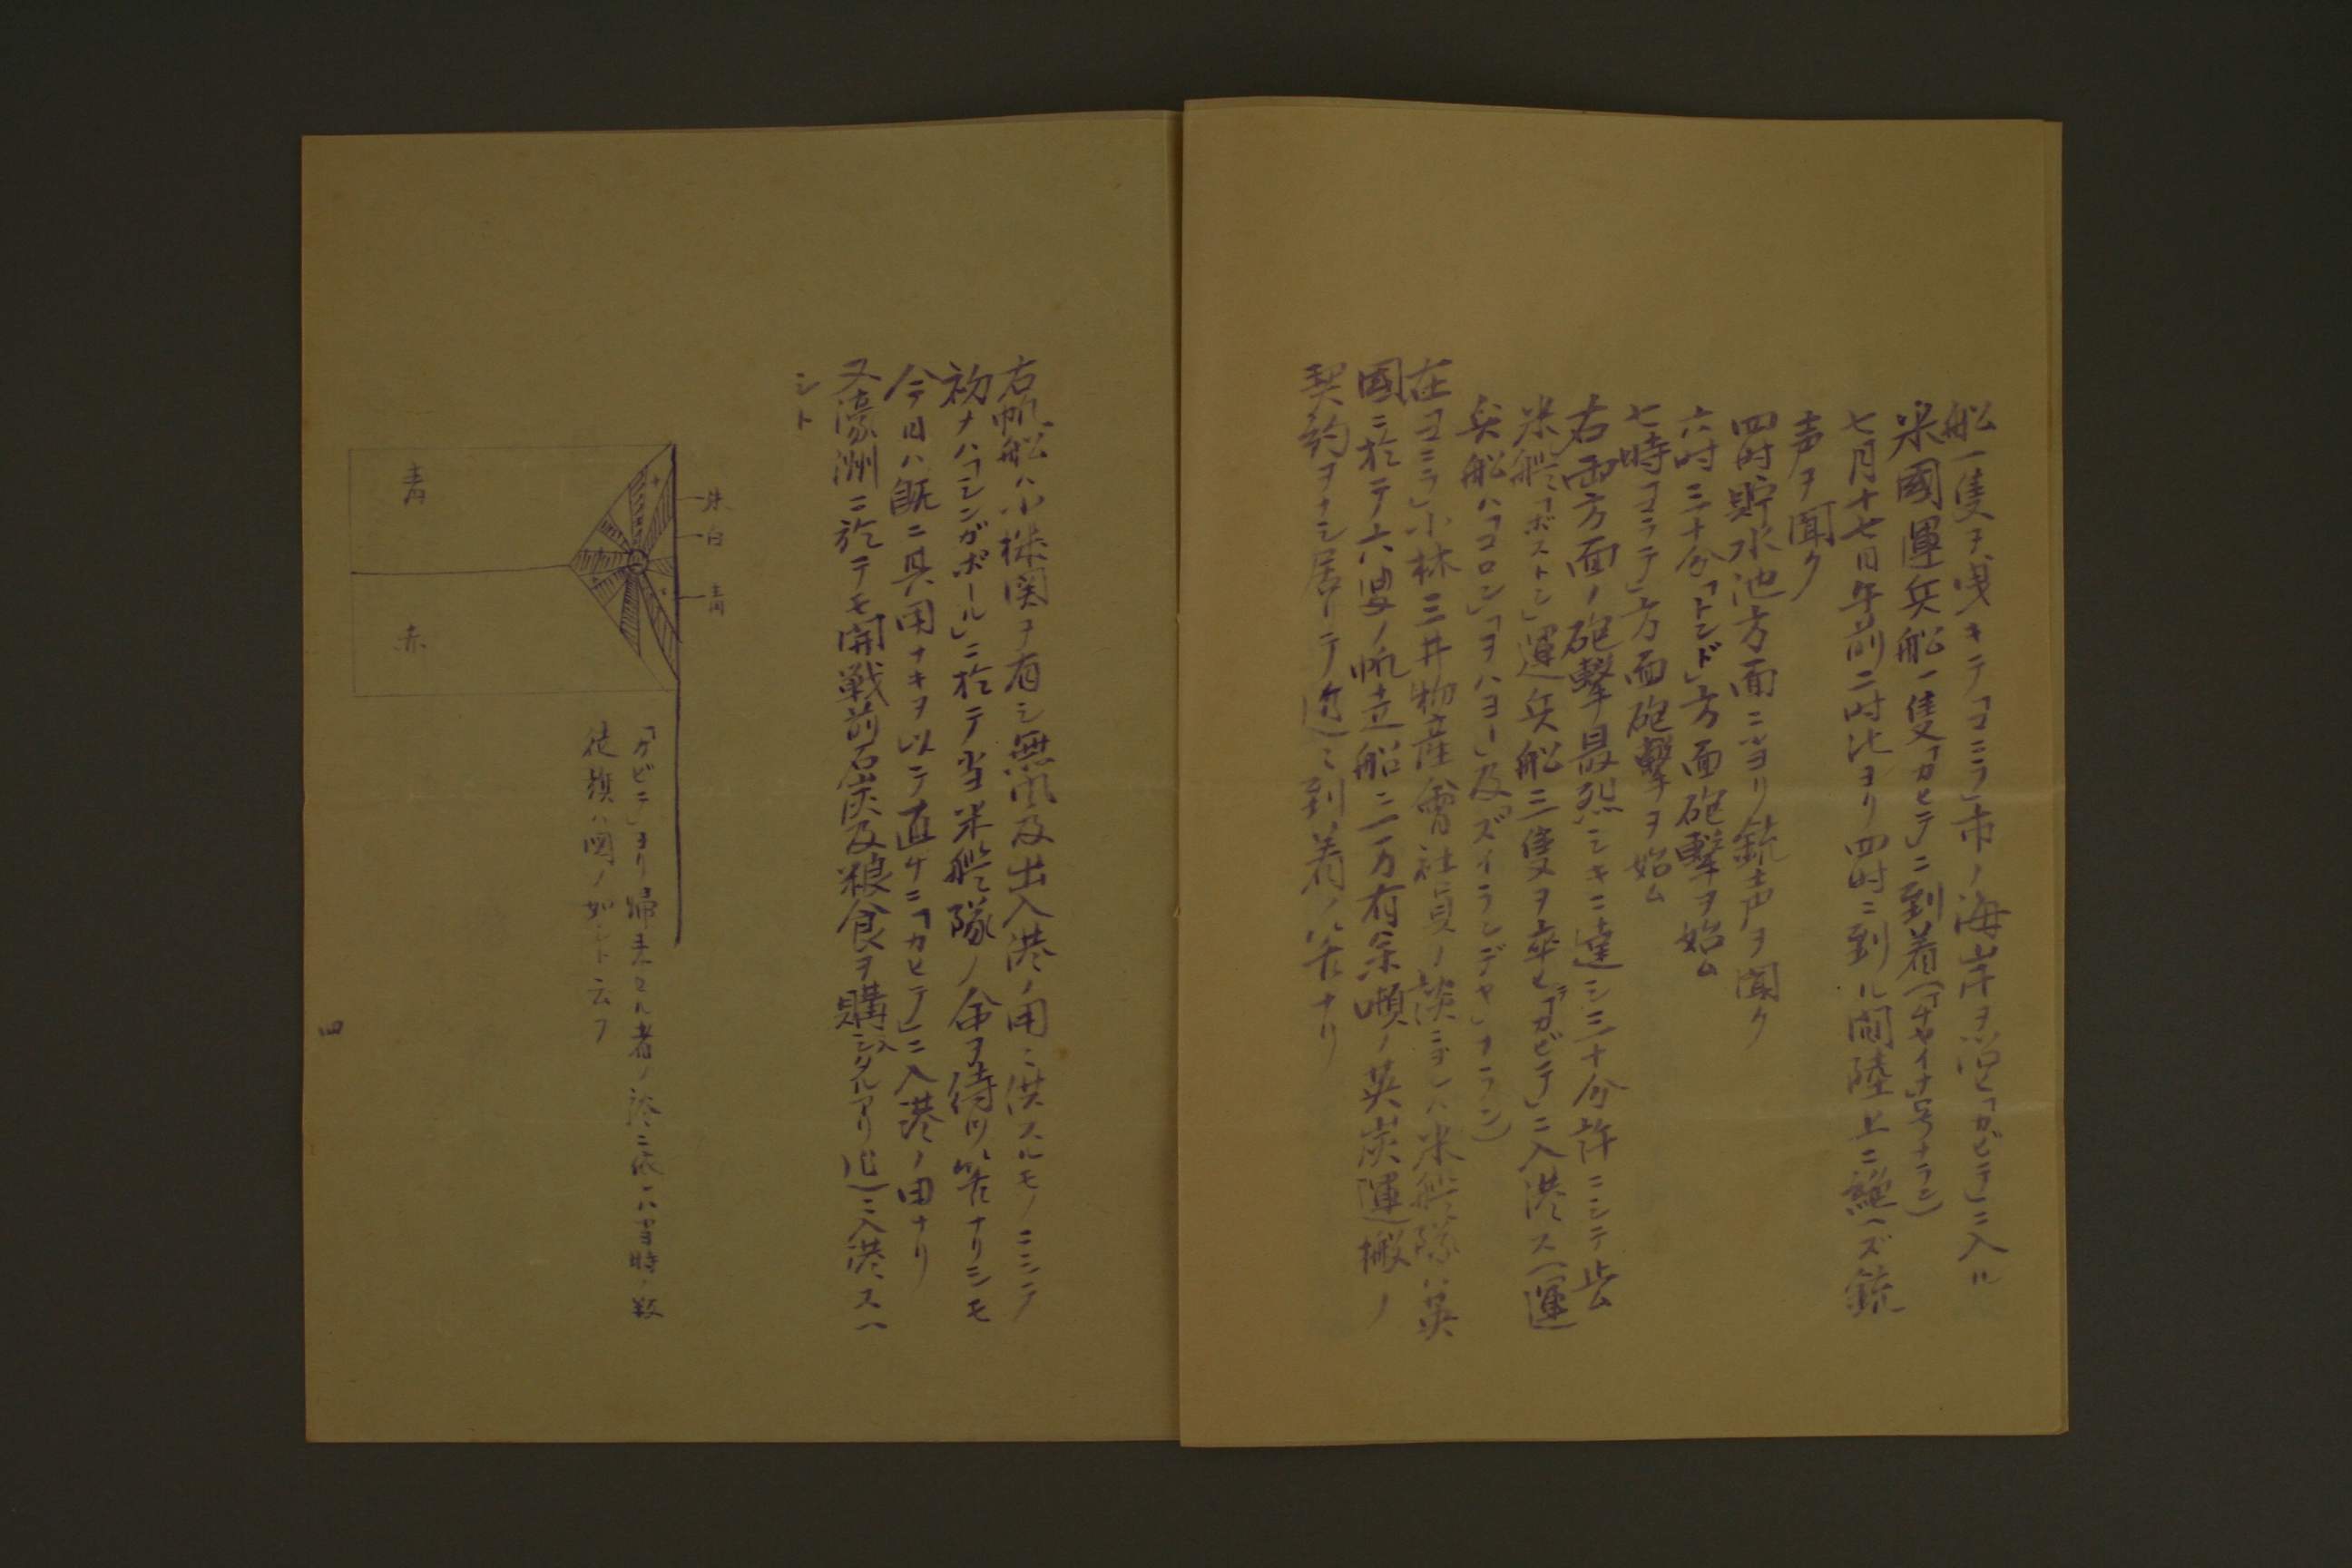 船一隻ヲ曳キテ「マニラ」市ノ海岸ヲ沿ヒ「カビテ」ニ入ル
米國運兵船一隻「カビテ」ニ到着(「チャイナ」号ナラン)
七月十七日午前二時比ヨリ四時ニ到ル間陸上ニ絶ヘズ銃
声ヲ聞ク
四時貯水池方面ニヨリ銃声ヲ聞ク
六時三十分「トンド」方面砲撃ヲ始ム
七時「マラテ」方面砲撃ヲ始ム
右両方面ノ砲撃最烈シキニ達シ三十分許ニシテ止ム
米艦「ボストン」運兵船三隻ヲ率ヒ「カビテ」ニ入港ス(運
兵船ハ「コロン」「ヲハヨー」及「ズイランヂヤ」ナラン)
在「マニラ」小林三井物産會社員ノ談ニヨレハ米艦隊ハ英
國ニ於テ六隻ノ帆走船ニ一万有余噸ノ英炭運搬ノ
契約ヲナシ居リテ近々到着ノ筈ナリ
右帆船ハ小機関ヲ有シ無風及出入港ノ用ニ供スルモノニシテ
初ナハ「シンガポール」ニ於テ当米艦隊ノ命ヲ待ツ筈ナリシモ
今日ハ既ニ其用ナキヲ以テ直ケニ「カビテ」ニ入港ノ由ナリ
又濠洲ニ於テモ開戦前石炭及粮食ヲ購入シタルアリ近々入港スヘ
シト
朱
白
青
青
赤
「カビテ」ヨリ帰来セル者ノ談ニ依レハ当時ノ叛
徒旗ハ図ノ如シト云フ
四